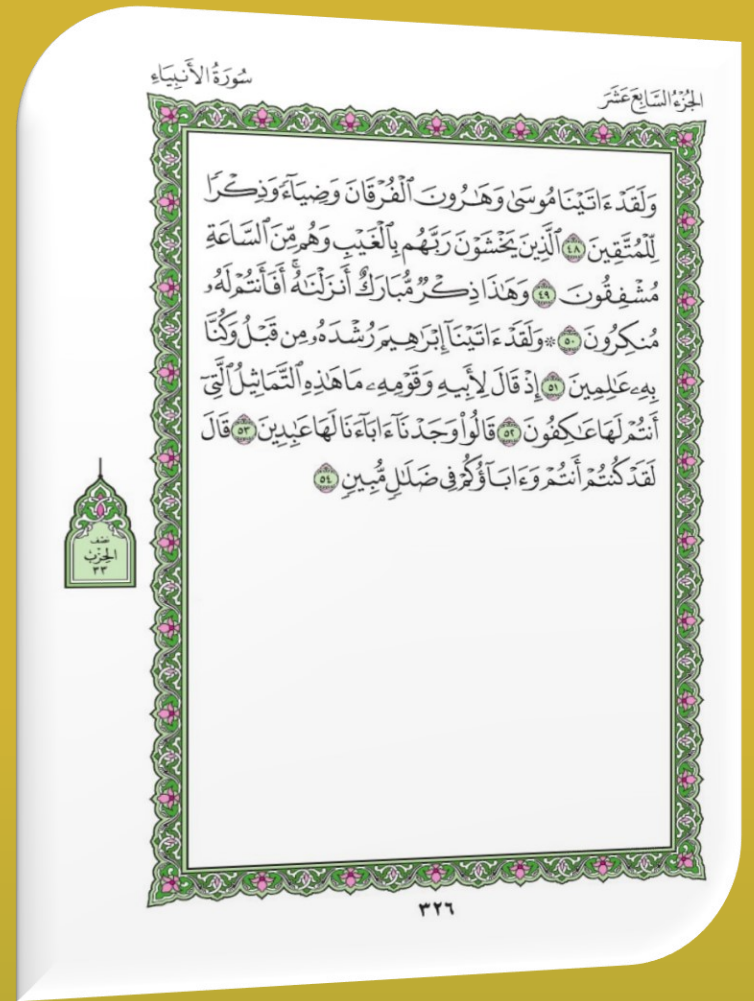 الجُزْءُ السَّابِعَ عَشَرَ
سُورَةُ الأَنبِيَاءِ
وَلَقَدْ ءَاتَيْنَا مُوسَىٰ وَهَٰرُونَ ٱلْفُرْقَانَ وَضِيَآءً وَذِكْرًا
لِّلْمُتَّقِينَ ٤٨ ٱلَّذِينَ يَخْشَوْنَ رَبَّهُم بِٱلْغَيْبِ وَهُم مِّنَ ٱلسَّاعَةِ
مُشْفِقُونَ ٤٩ وَهَٰذَا ذِكْرٌ مُّبَارَكٌ أَنزَلْنَٰهُ ۚ أَفَأَنتُمْ لَهُۥ
مُنكِرُونَ ٥٠ ۞ وَلَقَدْ ءَاتَيْنَآ إِبْرَٰهِيمَ رُشْدَهُۥ مِن قَبْلُ وَكُنَّا
بِهِۦ عَٰلِمِينَ ٥١ إِذْ قَالَ لِأَبِيهِ وَقَوْمِهِۦ مَا هَٰذِهِ ٱلتَّمَاثِيلُ ٱلَّتِىٓ
أَنتُمْ لَهَا عَٰكِفُونَ ٥٢ قَالُوا۟ وَجَدْنَآ ءَابَآءَنَا لَهَا عَٰبِدِينَ ٥٣ قَالَ
لَقَدْ كُنتُمْ أَنتُمْ وَءَابَآؤُكُمْ فِى ضَلَٰلٍ مُّبِينٍ ٥٤
نصف
الحِزْب
٣٣
٣٢٦